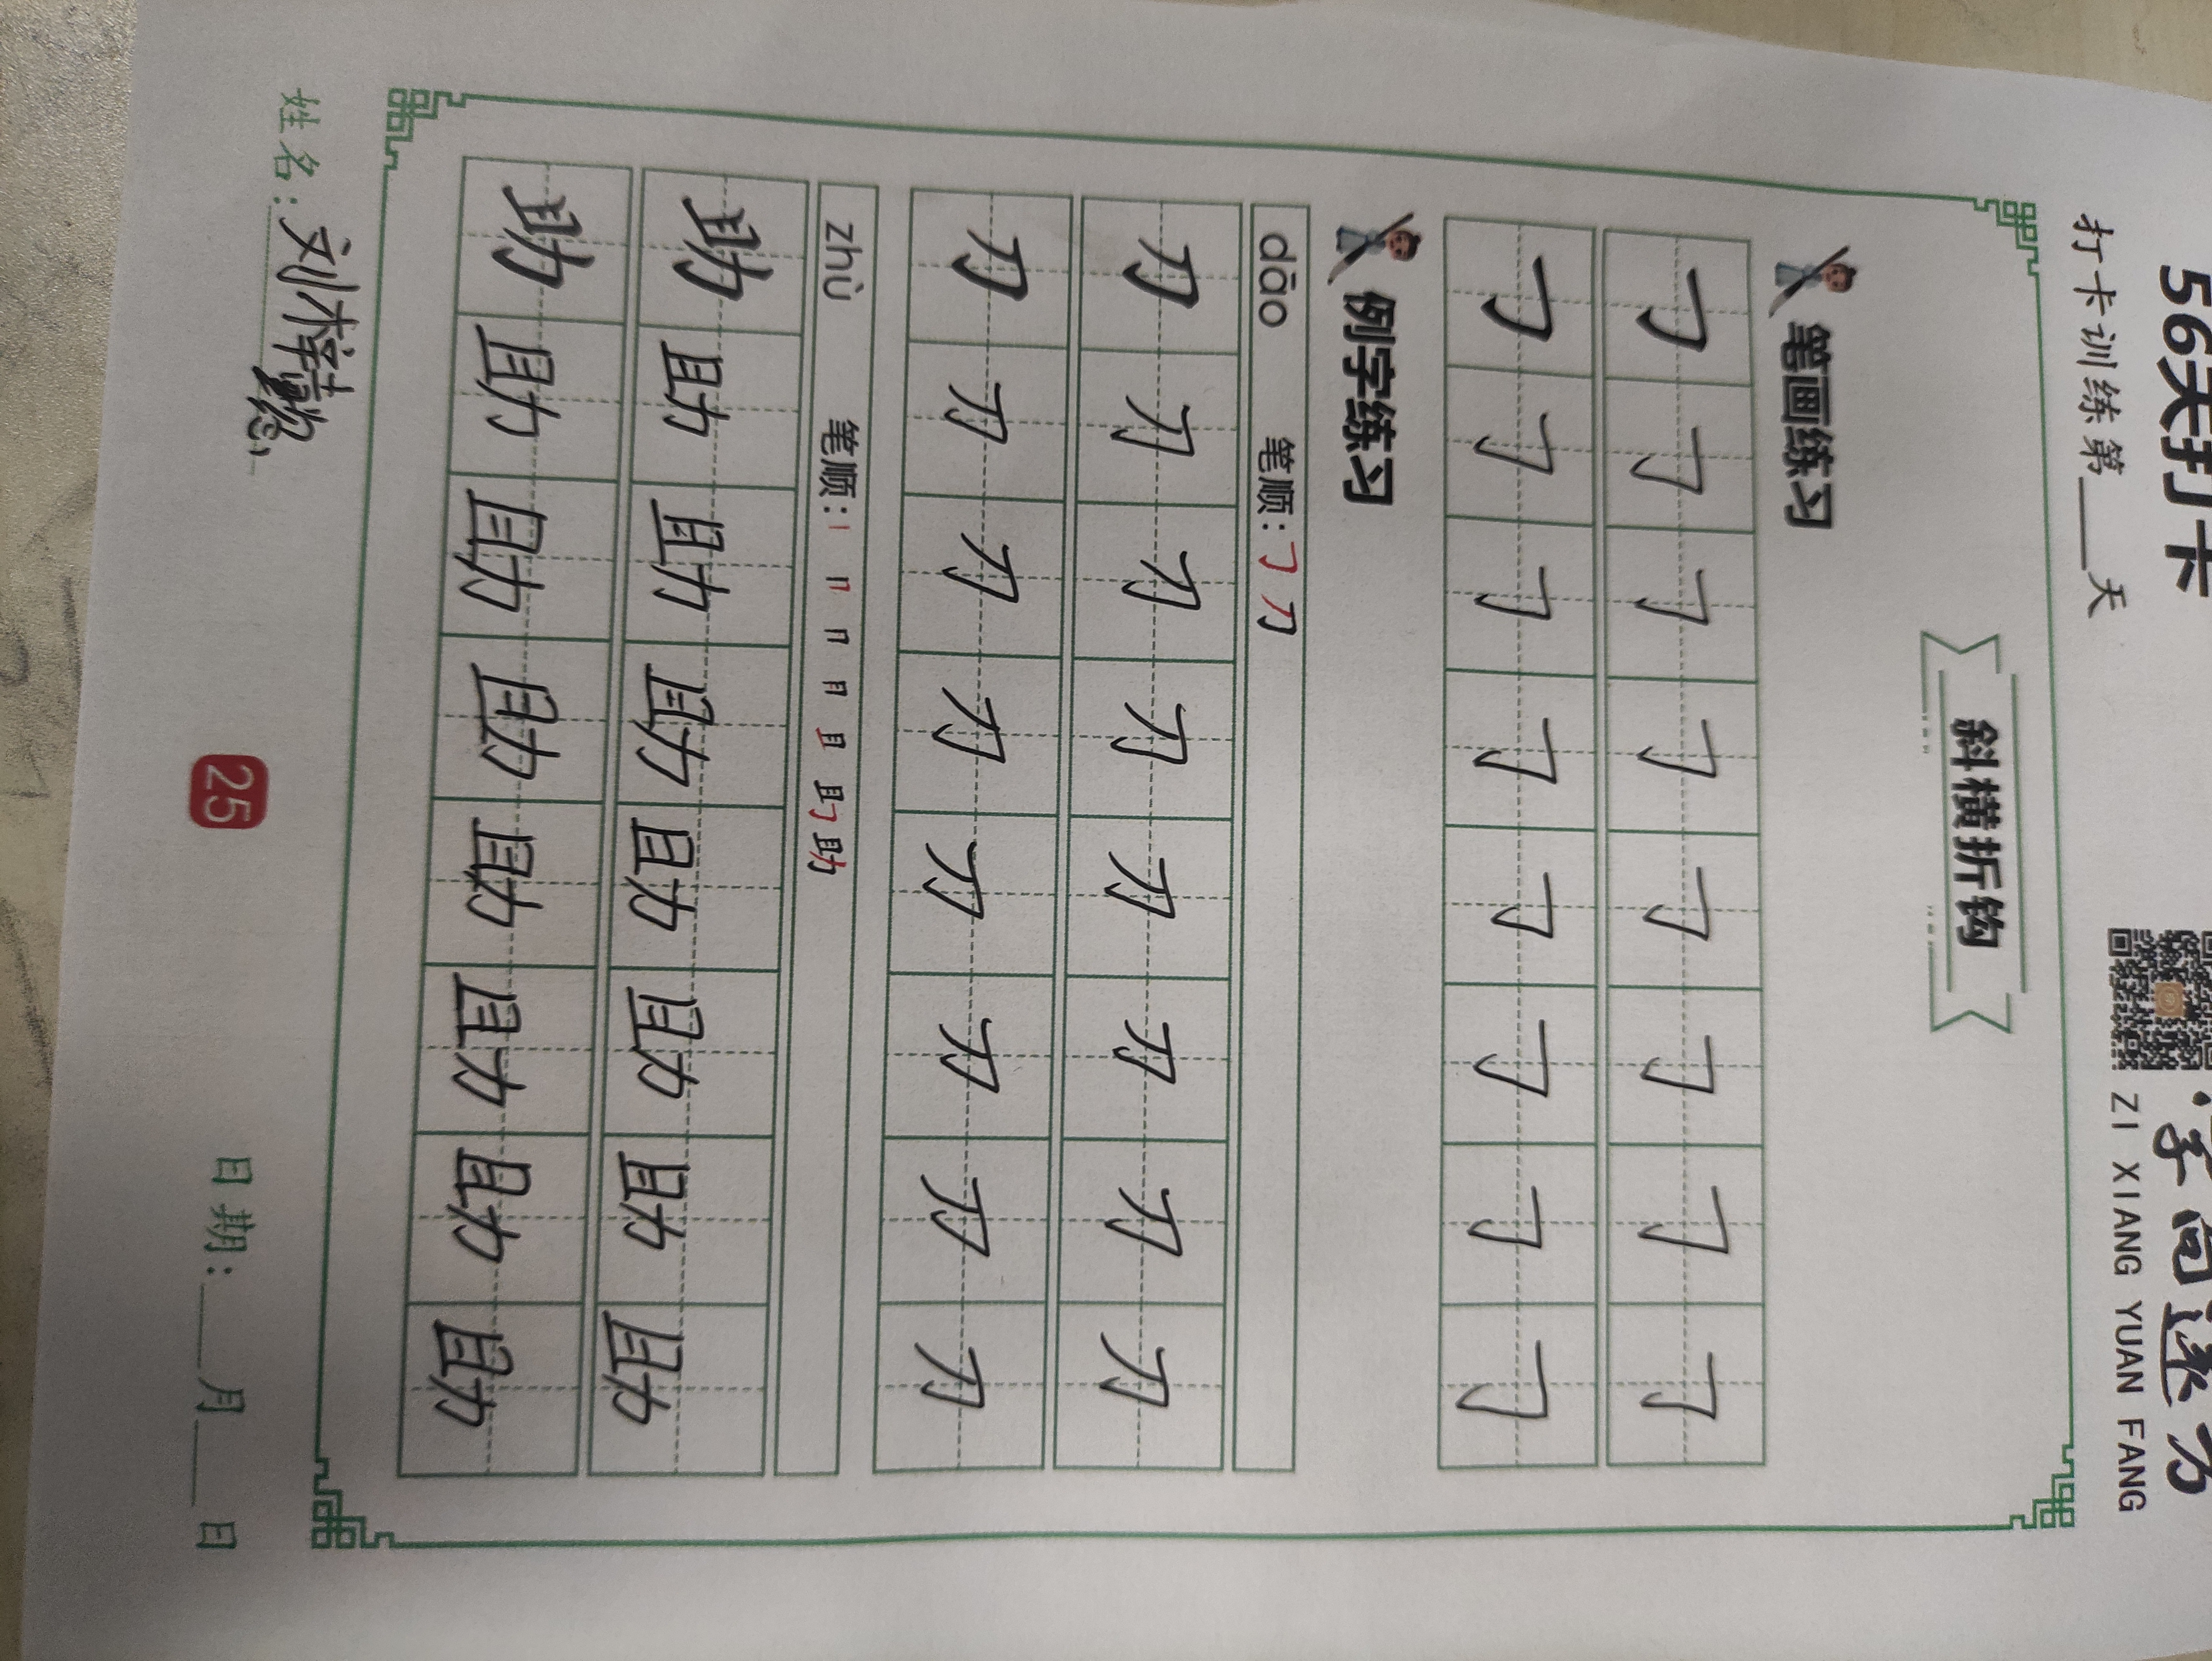 56天打卡
字向远方
打卡训练第___天
ZI XIANG YUAN FANG
斜横折钩
笔画练习
𠃌 𠃌 𠃌 𠃌 𠃌 𠃌 𠃌 𠃌
𠃌 𠃌 𠃌 𠃌 𠃌 𠃌 𠃌 𠃌
例字练习
dāo 笔顺：𠃌 刀
刀 刀 刀 刀 刀 刀 刀 刀
刀 刀 刀 刀 刀 刀 刀 刀
zhù 笔顺：丨 冂 冂 月 且 助 助
助 助 助 助 助 助 助 助
助 助 助 助 助 助 助 助
姓名：刘梓
25
日期：___月___日